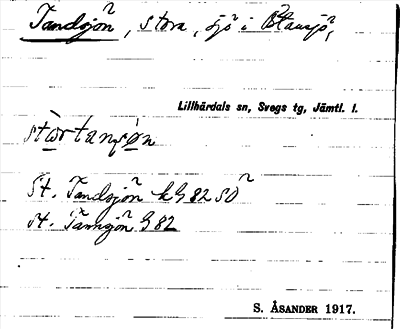 Tandsjön, stora, sjö i
Lillhärdals sn, Svegs tg, Jämtl. l.
stòrtansǿn
St. Tandsjön kG 82 SO
st. Tannsjön G 82
S. ÅSANDER 1917.